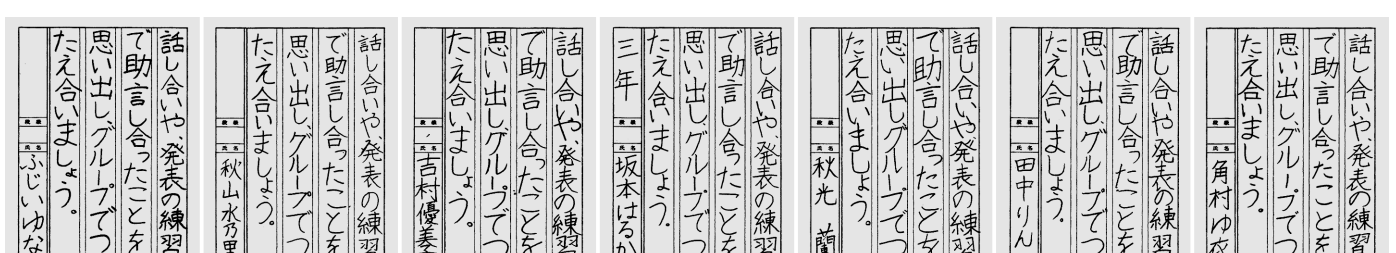 話し合いや、発表の練習
で助言し合ったことを
思い出し、グループでつ
たえ合いましょう。
段級
氏名
ふじいゆな
話し合いや、発表の練習
で助言し合ったことを
思い出し、グループでつ
たえ合いましょう。
段級
氏名
秋山水乃里
話し合いや、発表の練習
で助言し合ったことを
思い出し、グループでつ
たえ合いましょう。
段級
氏名
吉村優美
話し合いや、発表の練習
で助言し合ったことを
思い出し、グループでつ
たえ合いましょう。
三年
段級
氏名
坂本はるか
話し合いや、発表の練習
で助言し合ったことを
思い出し、グループでつ
たえ合いましょう。
段級
氏名
秋光 蘭
話し合いや、発表の練習
で助言し合ったことを
思い出し、グループでつ
たえ合いましょう。
段級
氏名
田中りん
話し合いや、発表の練習
で助言し合ったことを
思い出し、グループでつ
たえ合いましょう。
段級
氏名
角村ゆ